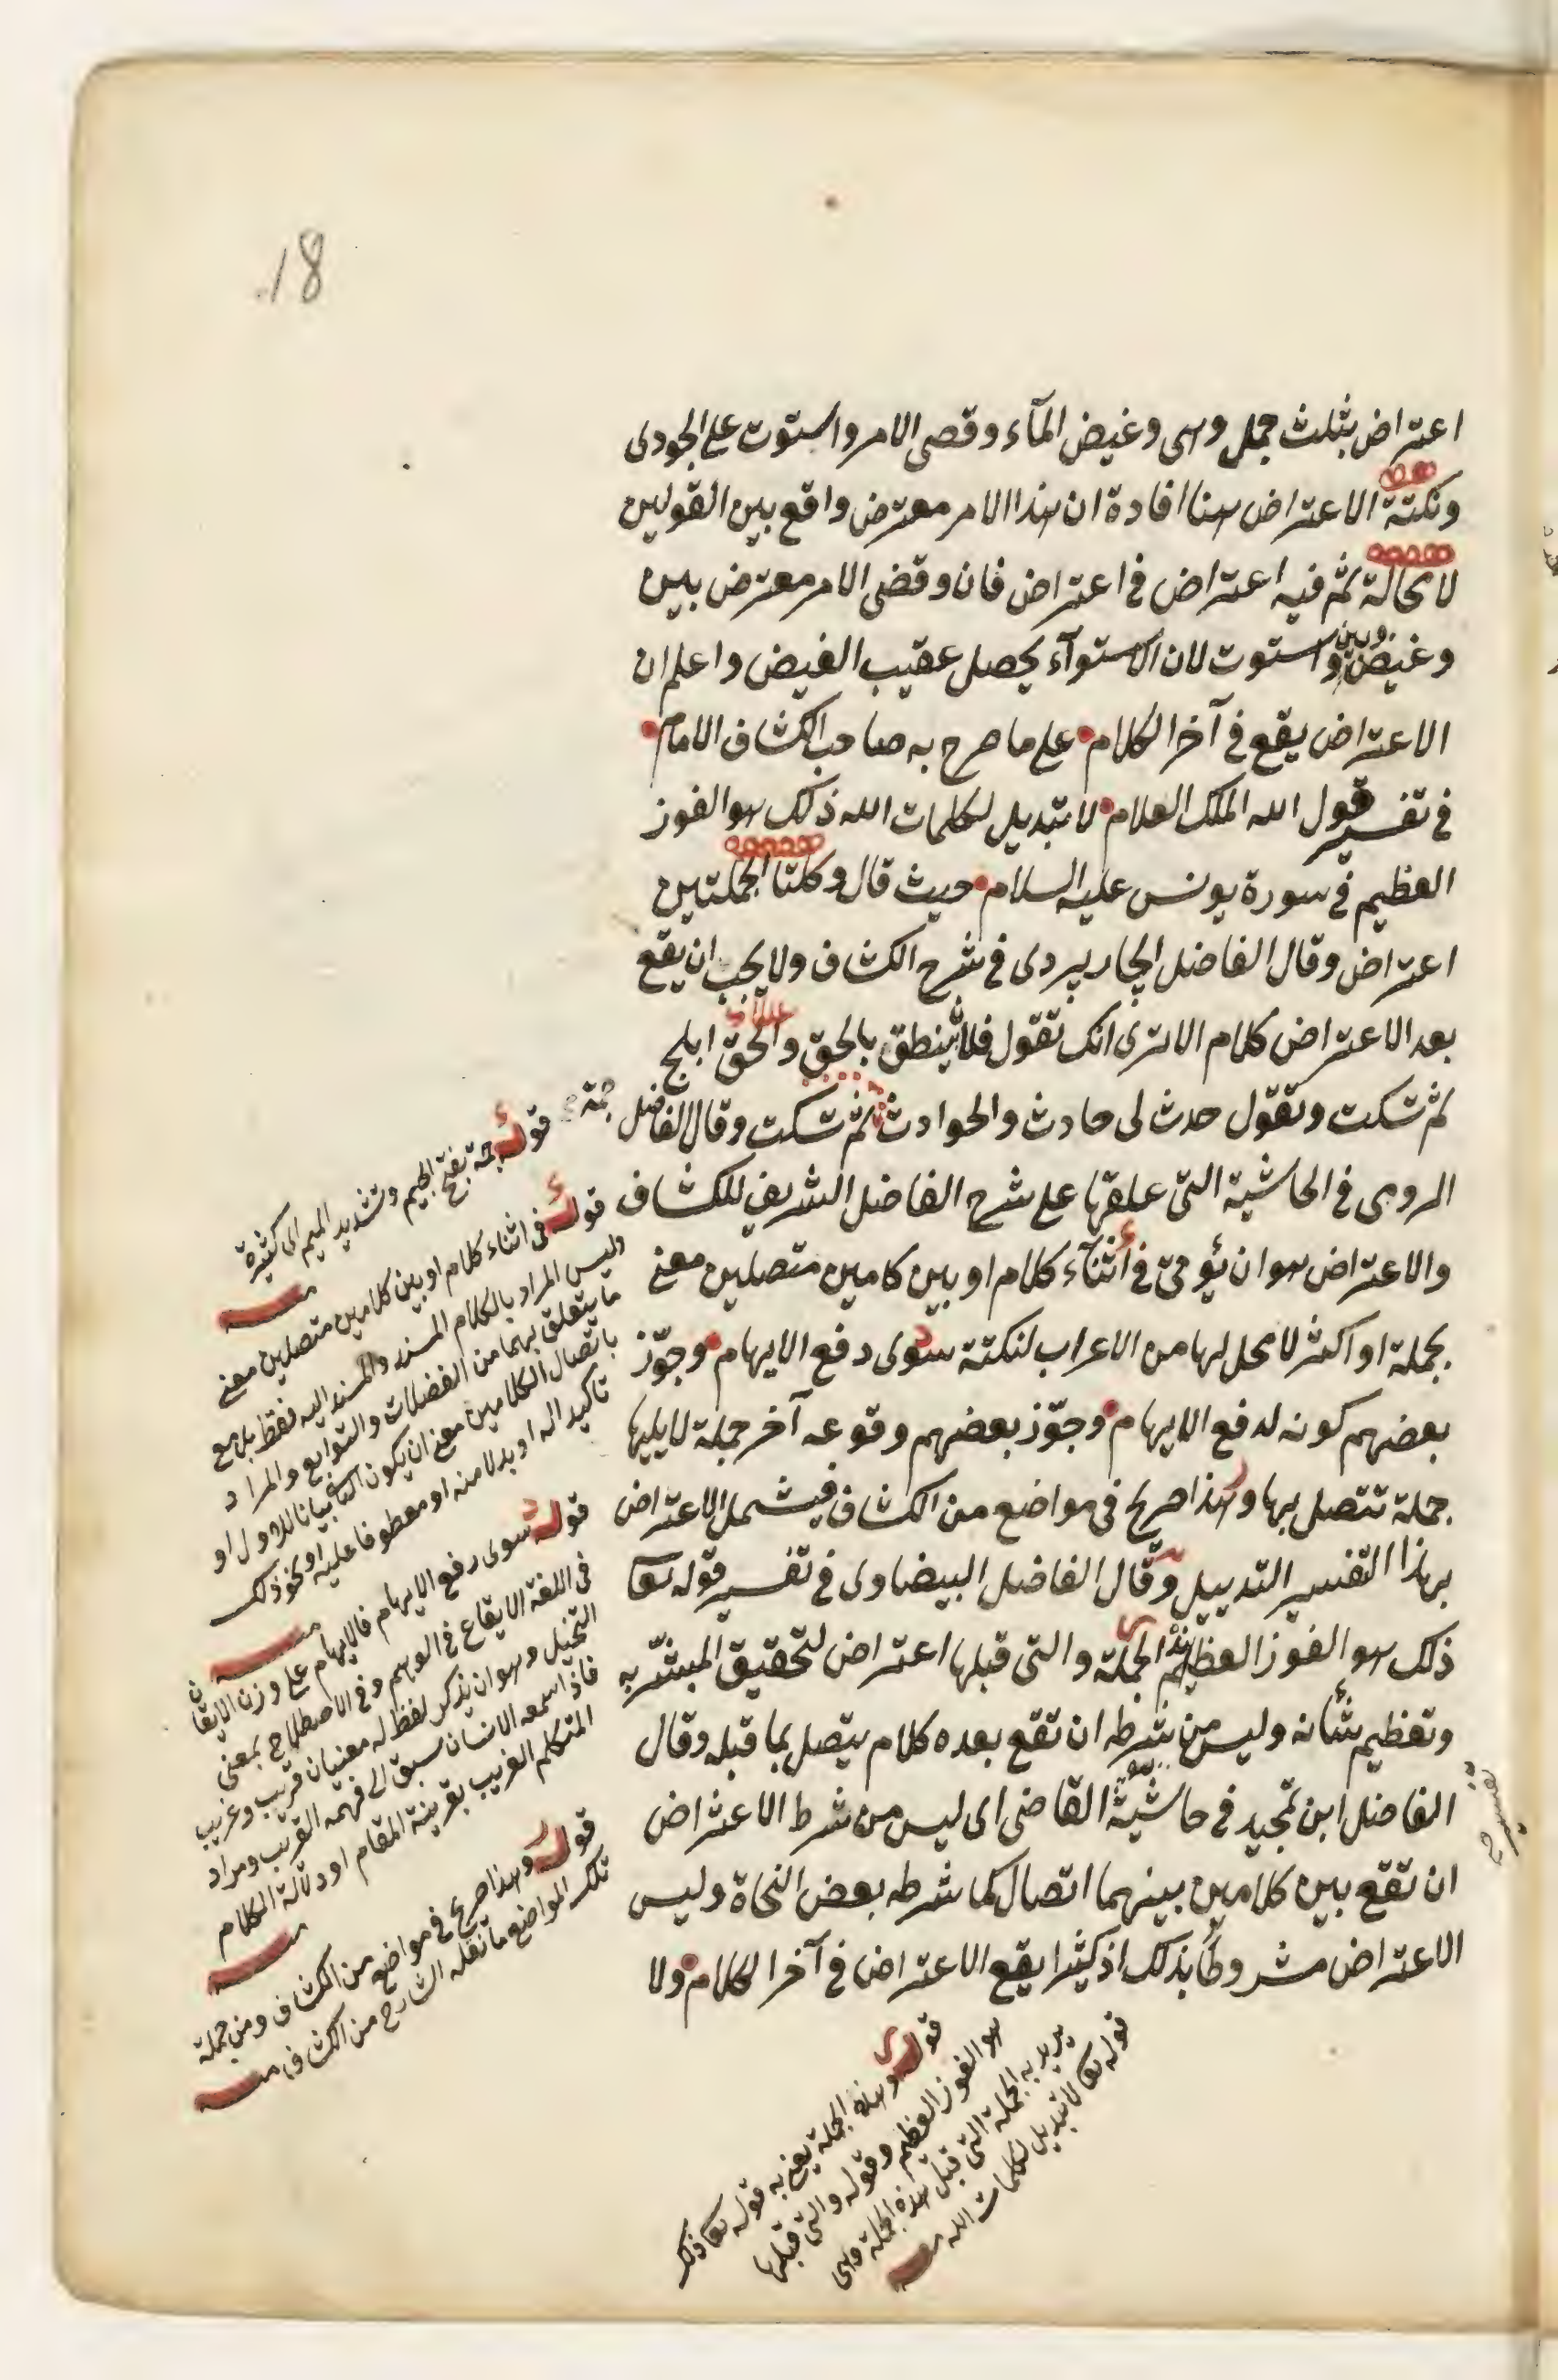 18
اعتراض بثلث جمل وهى وغيض المآء وقضى الامر واستوت على الجودى
ونكتة الاعتراض هنا افادة ان هذا الامر معترض واقع بين القولين
لا محالة ثم فيه اعتراض فى اعتراض فان وقضى الامر معترض بين
وغيض وبين واستوت لان الاستوآء يحصل عقيب الغيض واعلم ان
الاعتراض يقع فى آخر الكلام على ما صرح به صاحب الكشاف الامام
فى تفسير قول الله الملك العلام لا تبديل لكلمات الله ذلك هو الفوز
العظيم فى سورة يونس عليه السلام حيث قال وكلتا الجملتين
اعتراض وقال الفاضل الجاربردى فى شرح الكشاف ولا يجب ان يقع
بعد الاعتراض كلام الا ترى انك تقول فلان ينطق بالحق والحق ابلج
ثم تسكت وتقول حدث لى حادث والحوادث جمة ثم تسكت وقال الفاضل
الرومى فى الحاشية التى علقها على شرح الفاضل الشريف للكشاف
والاعتراض هو ان يؤتى فى اثنآء كلام او بين كامين متصلين معنى
بجملة او اكثر لا محل لها من الاعراب لنكتة سوى دفع الايهام وجوّز
بعضهم كونه لدفع الايهام وجوّز بعضهم وقوعه آخر جملة لا يليها
جملة تتصل بها وهذا صريح فى مواضع من الكشاف فيشمل الاعتراض
بهذا التفسير التذييل وقال الفاضل البيضاوى فى تفسير قوله تعا
ذلك هو الفوز العظيم هذه الجملة والتى قبلها اعتراض لتحقيق المبشّر به
وتعظيم شأنه وليس من شرطه ان تقع بعده كلام يتصل بما قبله وقال
الفاضل ابن تمجيد فى حاشية القاضى اى ليس من شرط الاعتراض
ان تقع بين كلامين بينهما اتصال كما شرطه بعض النحاة وليس
الاعتراض مشروطا بذلك اذ كثيرا يقع الاعتراض فى آخر الكلام ولا
قوله جمة بفتح الجيم وتشديد الميم اى كثيرة
منه
قوله فى اثناء كلام او بين كلامين متصلين معنى
وليس المراد بالكلام المسند والمسند اليه فقط بل مع
ما يتعلق بهما من الفضلات والتوابع والمراد
باتصال الكلامين معنى ان يكون الثانى بيانا للاول او
تأكيدا له او بدلا منه او معطوفا عليه او نحو ذلك
منه
قوله سوى رفع الايهام فالايهام على وزن الايقان
فى اللغة الايقاع فى الوهم وفى الاصطلاح بمعنى
التخيل وهو ان يذكر لفظ له معنيان قريب وغريب
فاذا سمعه الانسان سبق الى فهمه القريب ومراد
المتكلم الغريب بقرينة المقام او دلالة الكلام
منه
قوله وهذا صريح فى مواضع من الكشاف ومن جملة
تلك المواضع ما نقله الشارح من الكشاف منه
قوله وهذه الجملة يعنى به قوله تعا ذلك
هو الفوز العظيم وقوله والتى قبلها
يريد به الجملة التى قبل هذه الجملة وهى
قوله تعا لا تبديل لكلمات الله منه